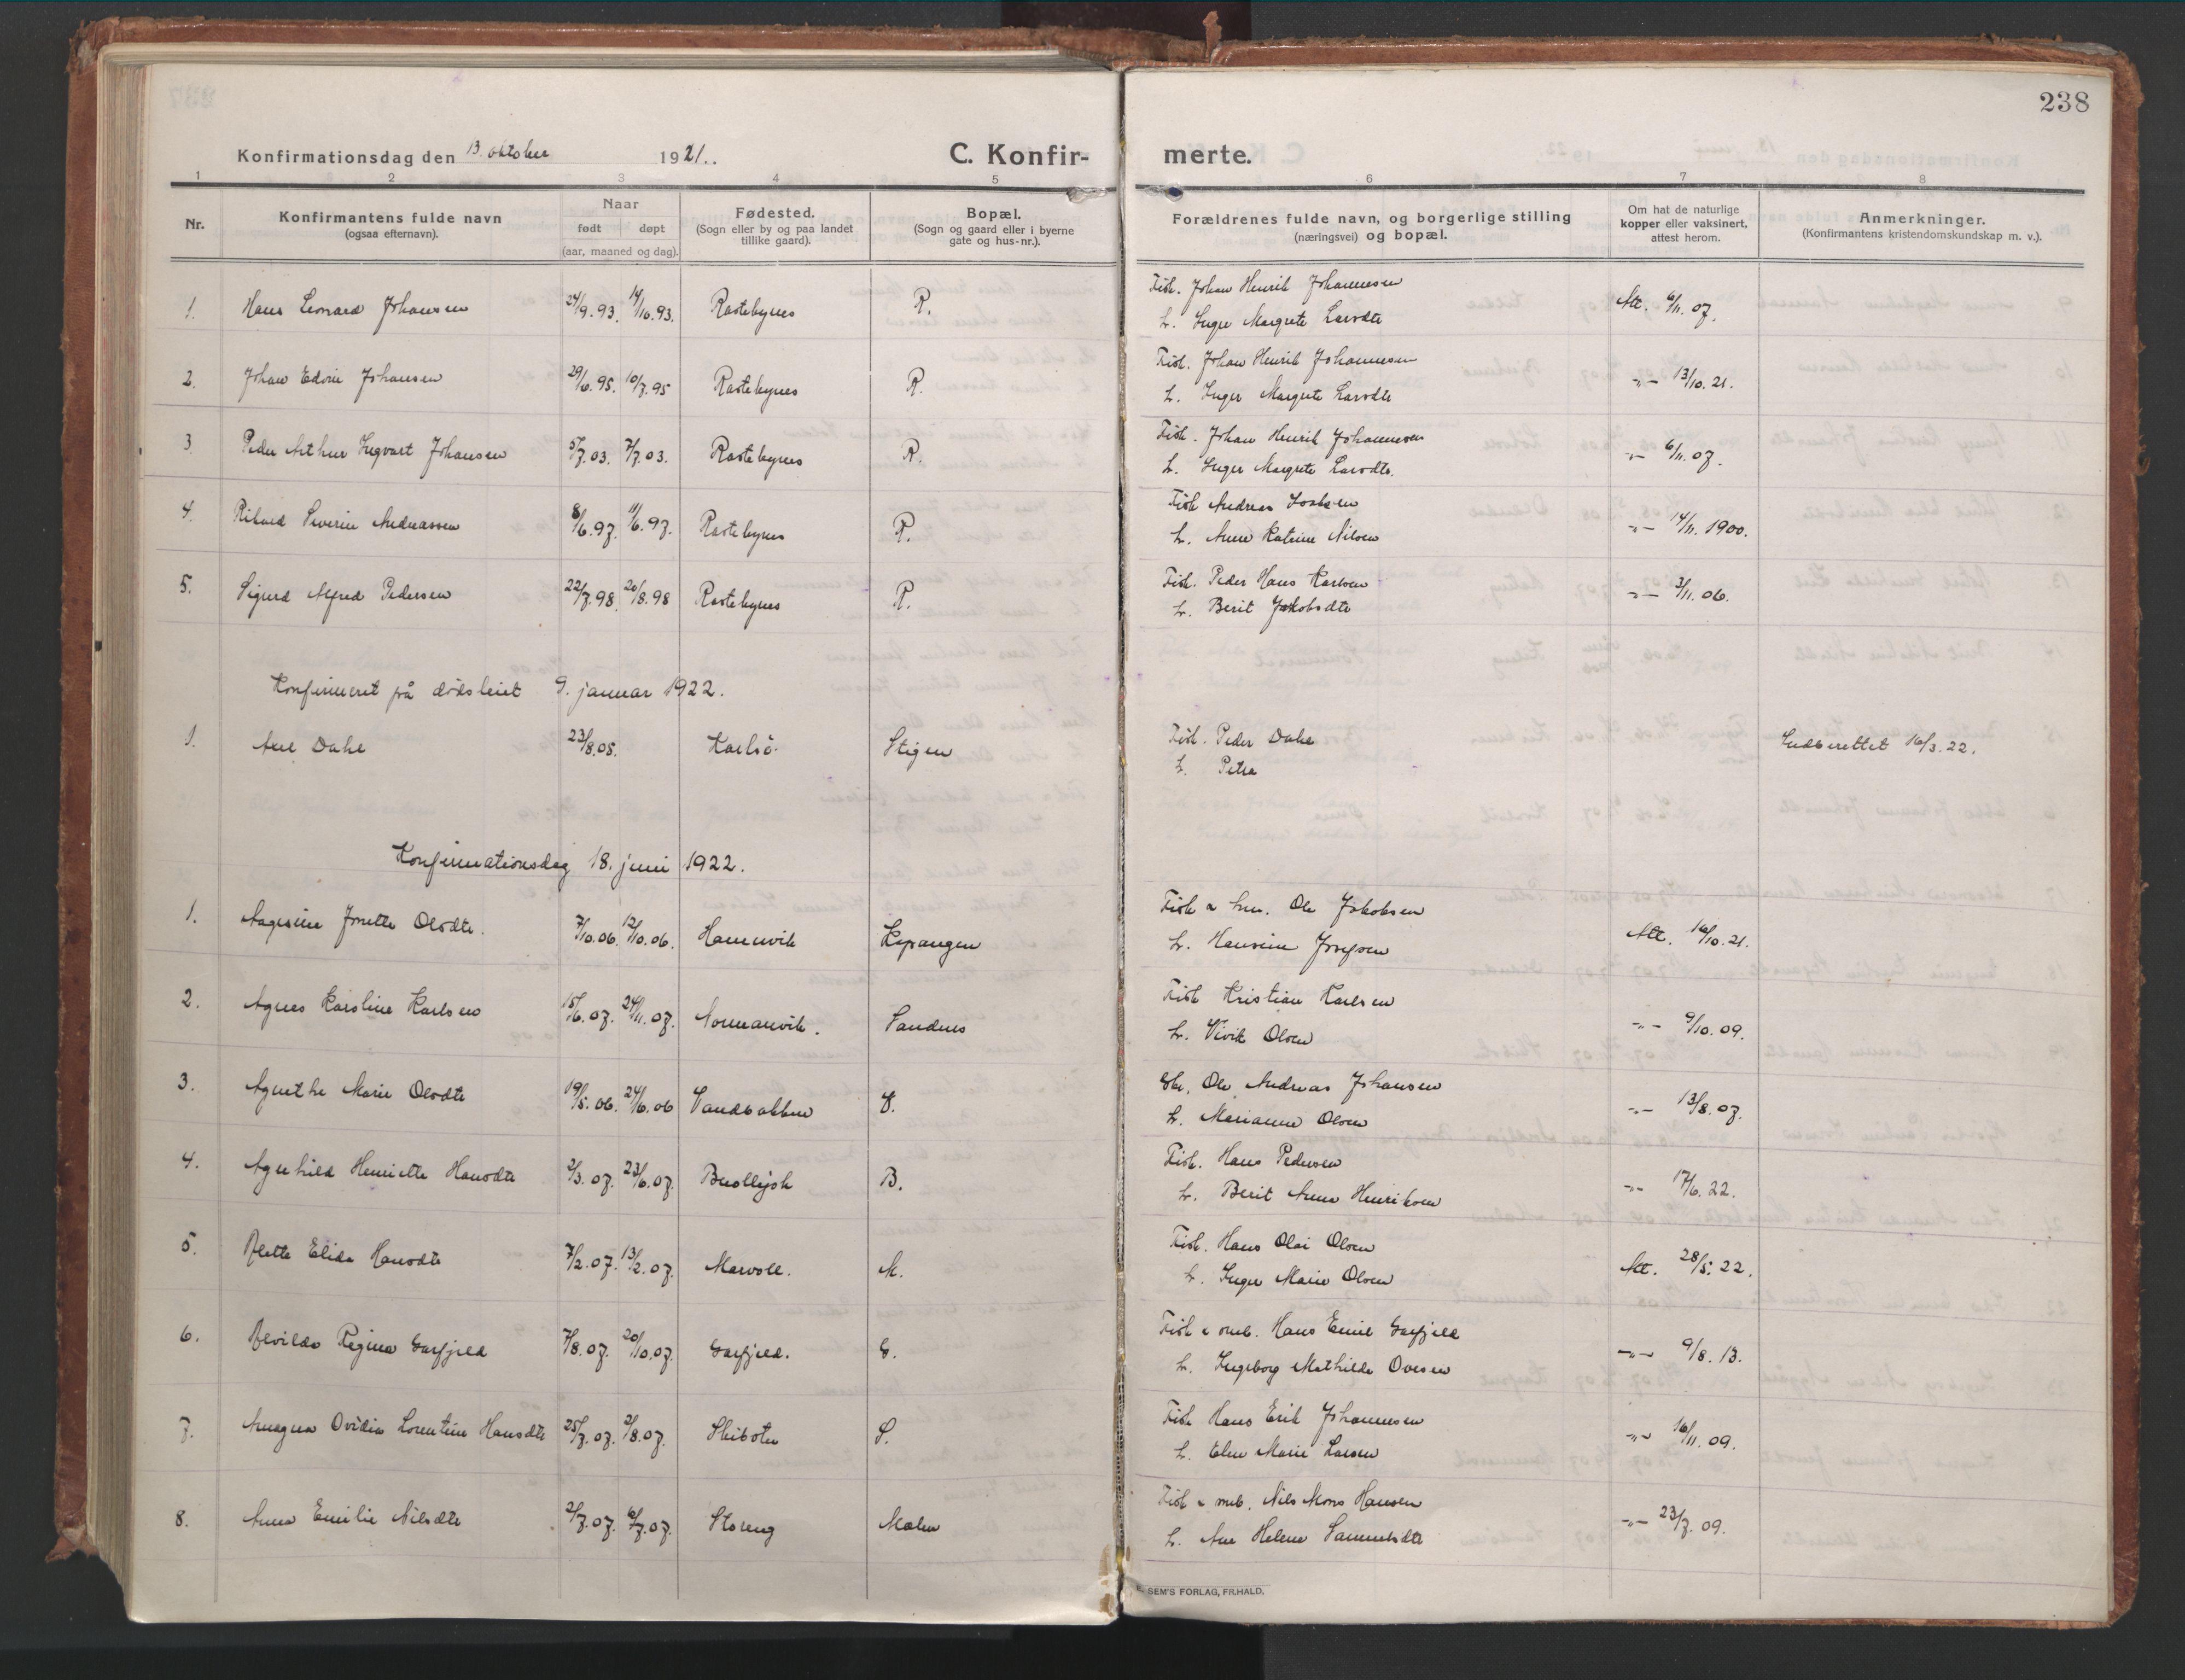 238
Konfirmationsdag den 13. oktober 1921.. C. Konfir- merte.
1 2 3 4 5 6 7 8
Nr. Konfirmantens fulde navn (ogsaa efternavn). Naar født døpt (aar, maaned og dag). Fødested. (Sogn eller by og paa landet tillike gaard). Bopæl. (Sogn og gaard eller i byerne gate og hus-nr.). Forældrenes fulde navn, og borgerlige stilling (næringsvei) og bopæl. Om hat de naturlige kopper eller vaksinert, attest herom. Anmerkninger. (Konfirmantens kristendomskundskap m. v.).
1. Hans Leonard Johansen 24/9.93. 14/10.93. Rastebynes R. Fisk. Johan Henrik Johannesen Att. 6/11.07.
h. Inger Margrete Larsdtr
2. Johan Edvin Johansen 29/6.95. 10/7.95 Rastebynes R. Fisk. Johan Henrik Johannesen -"- 13/10.21.
h. Inger Margrete Larsdtr
3. Peder Arthur Ingvart Johansen 5/7.03. 7/7.03. Rastebynes R. Fisk. Johan Henrik Johannesen -"- 6/11.07.
h. Inger Margrete Larsdtr.
4. Rikard Severin Andreassen 8/6.97. 11/6.97. Rastebynes R. Fisk Andreas -"- 14/11.1900.
h. Anne Katrine Nilsen
5. Sigurd Alfred Pedersen 22/7.98. 20/8.98 Rastebynes R. Fisk. Peder Hans Karlsen -"- 3/11.06.
h. Berit Jakobsdtr
Konfirmeret på dødsleiet 9. januar 1922.
1. Dahl 23/8.05. Karlsö Stigen Fisk. Peder Dahl Indberettet 16/3.22.
h. Petra
Konfirmationsdag 18. juni 1922.
1. Aagesine Jonette Olsdtr. 7/10.06. 12/10.06. Hamnvik Kopangen Fisk & Ole Jakobsen Att. 16/10.21.
h. Hansine Josefsen
2. Agnes Karoline Karlsen 15/6.07. 24/11.07. Normanvik. Sandnes Fisk Kristian Karlsen -"- 9/10.09.
h. Vivik Olsen
3. Agnethe Marie Olsdtr 19/5.06. 24/6.06 Sandbakken S. Gbr. Ole Andreas Johansen -"- 13/8.07.
h. Marianne Olsen
4. Agnhild Henriette Hansdtr 2/3.07. 23/6.07. B. Fisk. Hans Pedersen -"- 17/6.22.
h. Berit Anna Henriksen
5. Alette Elida Hansdtr 7/2.07. 13/2.07. Marvoll. M. Fisk. Hans Olai Olsen Att. 28/5.22.
h. Inger Marie Olsen
6. Alvilda Regina Garfjeld 7/8.07. 20/10.07. Garfjeld. G. Fisk & smb. Hans Emil Garfjeld -"- 9/8.13.
h. Ingeborg Mathilde Ovesen
7. Amagna Ovidia Lorentine Hansdtr 25/7.07. 2/8.07. Skibotn S. Fisk Hans Erik Johannesen -"- 16/11.09.
h. Elen Marie Larsen
8. Anna Emilie Nilsdtr 2/7.07. 6/7.07. Storeng Malen Fisk & smb. Nils Mons Hansen -"- 23/7.09.
h. Ane Helene Samuelsdtr
E. SEM'S FORLAG, FR.HALD.